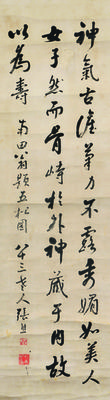 神氣古淡筆力不露秀媚如美人
女子然而骨崎於外神藏于内故
以為壽 南田翁題五松圖
八十三老人張